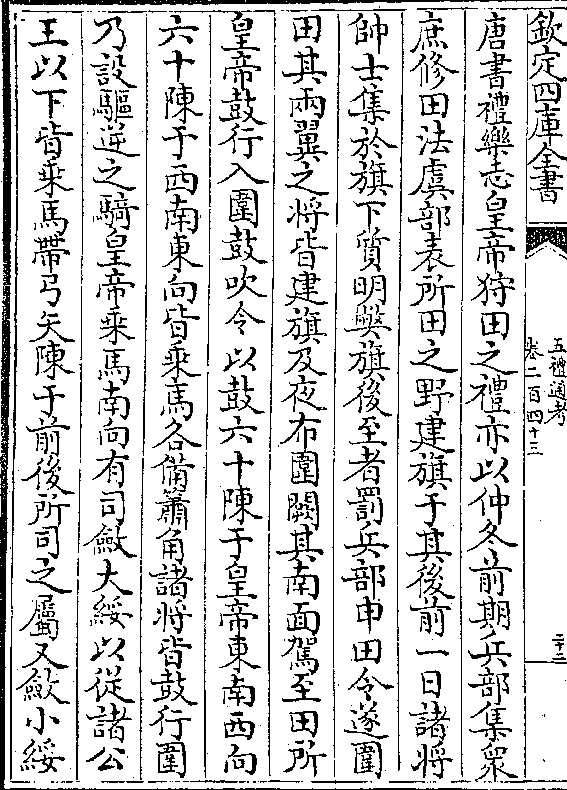 欽定四庫全書
五禮通考
卷二百四十三
二十二
唐書禮樂志皇帝狩田之禮亦以仲冬前期兵部集衆
庶修田法虞部表所田之野建旗于其後前一日諸將
帥士集於旗下質明弊旗後至者罰兵部申田令遂圍
田其兩翼之將皆建旗及夜布圍闕其南面駕至田所
皇帝鼓行入圍鼓吹令以鼓六十陳于皇帝東南西向
六十陳于西南東向皆乘馬各備簫角諸將皆鼓行圍
乃設驅逆之騎皇帝乘馬南向有司斂大綏以從諸公
王以下皆乘馬帶弓矢陳于前後所司之屬又斂小綏